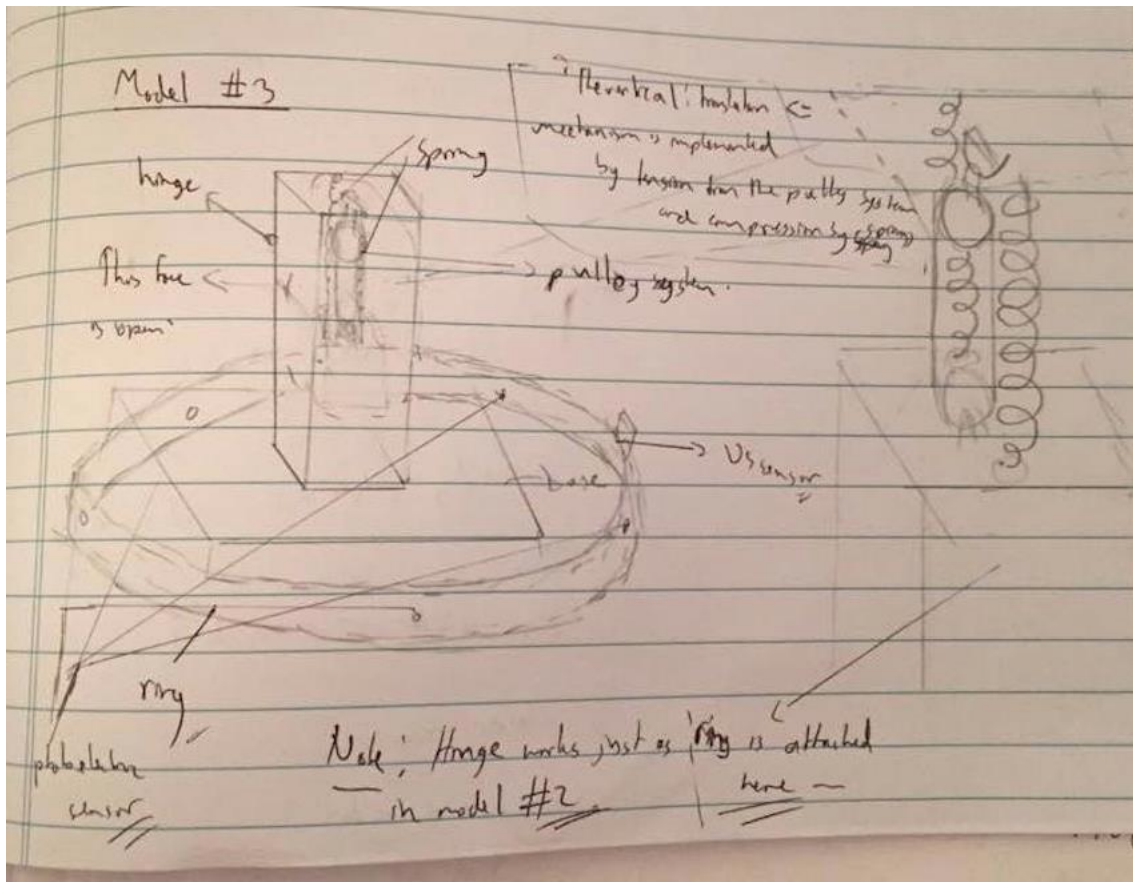 Model #3
hinge
spring
This face
is open
pulley system.
"The vertical" translation <=
mechanism is implemented
by tension from the pulley system
and compression by spring
base
US sensor
ring
photoelectric
sensor
Note: Hinge works just as
in model #2
ring is attached
here